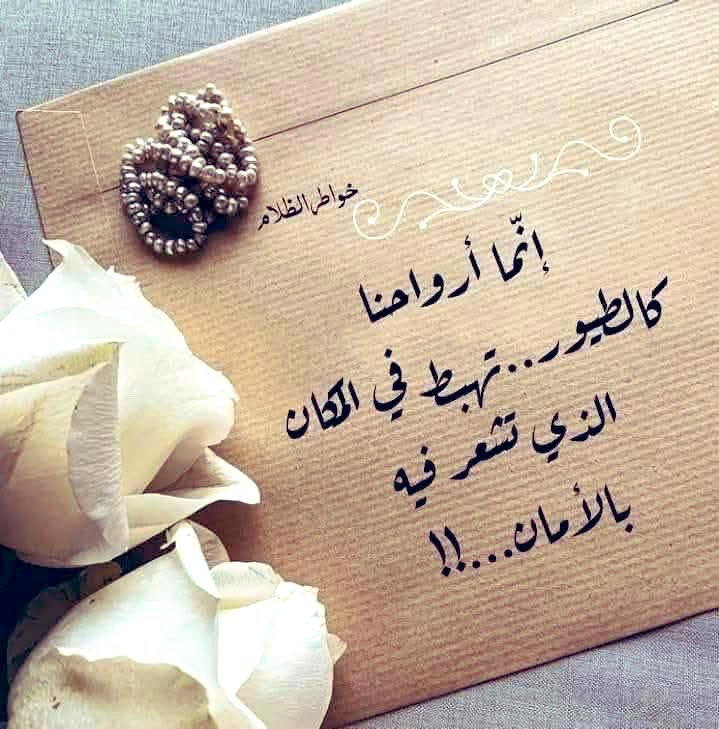 خواطر الظلام
إنّما أرواحنا
كالطيور..تهبط في المكان
الذي تشعر فيه
بالأمان...!!